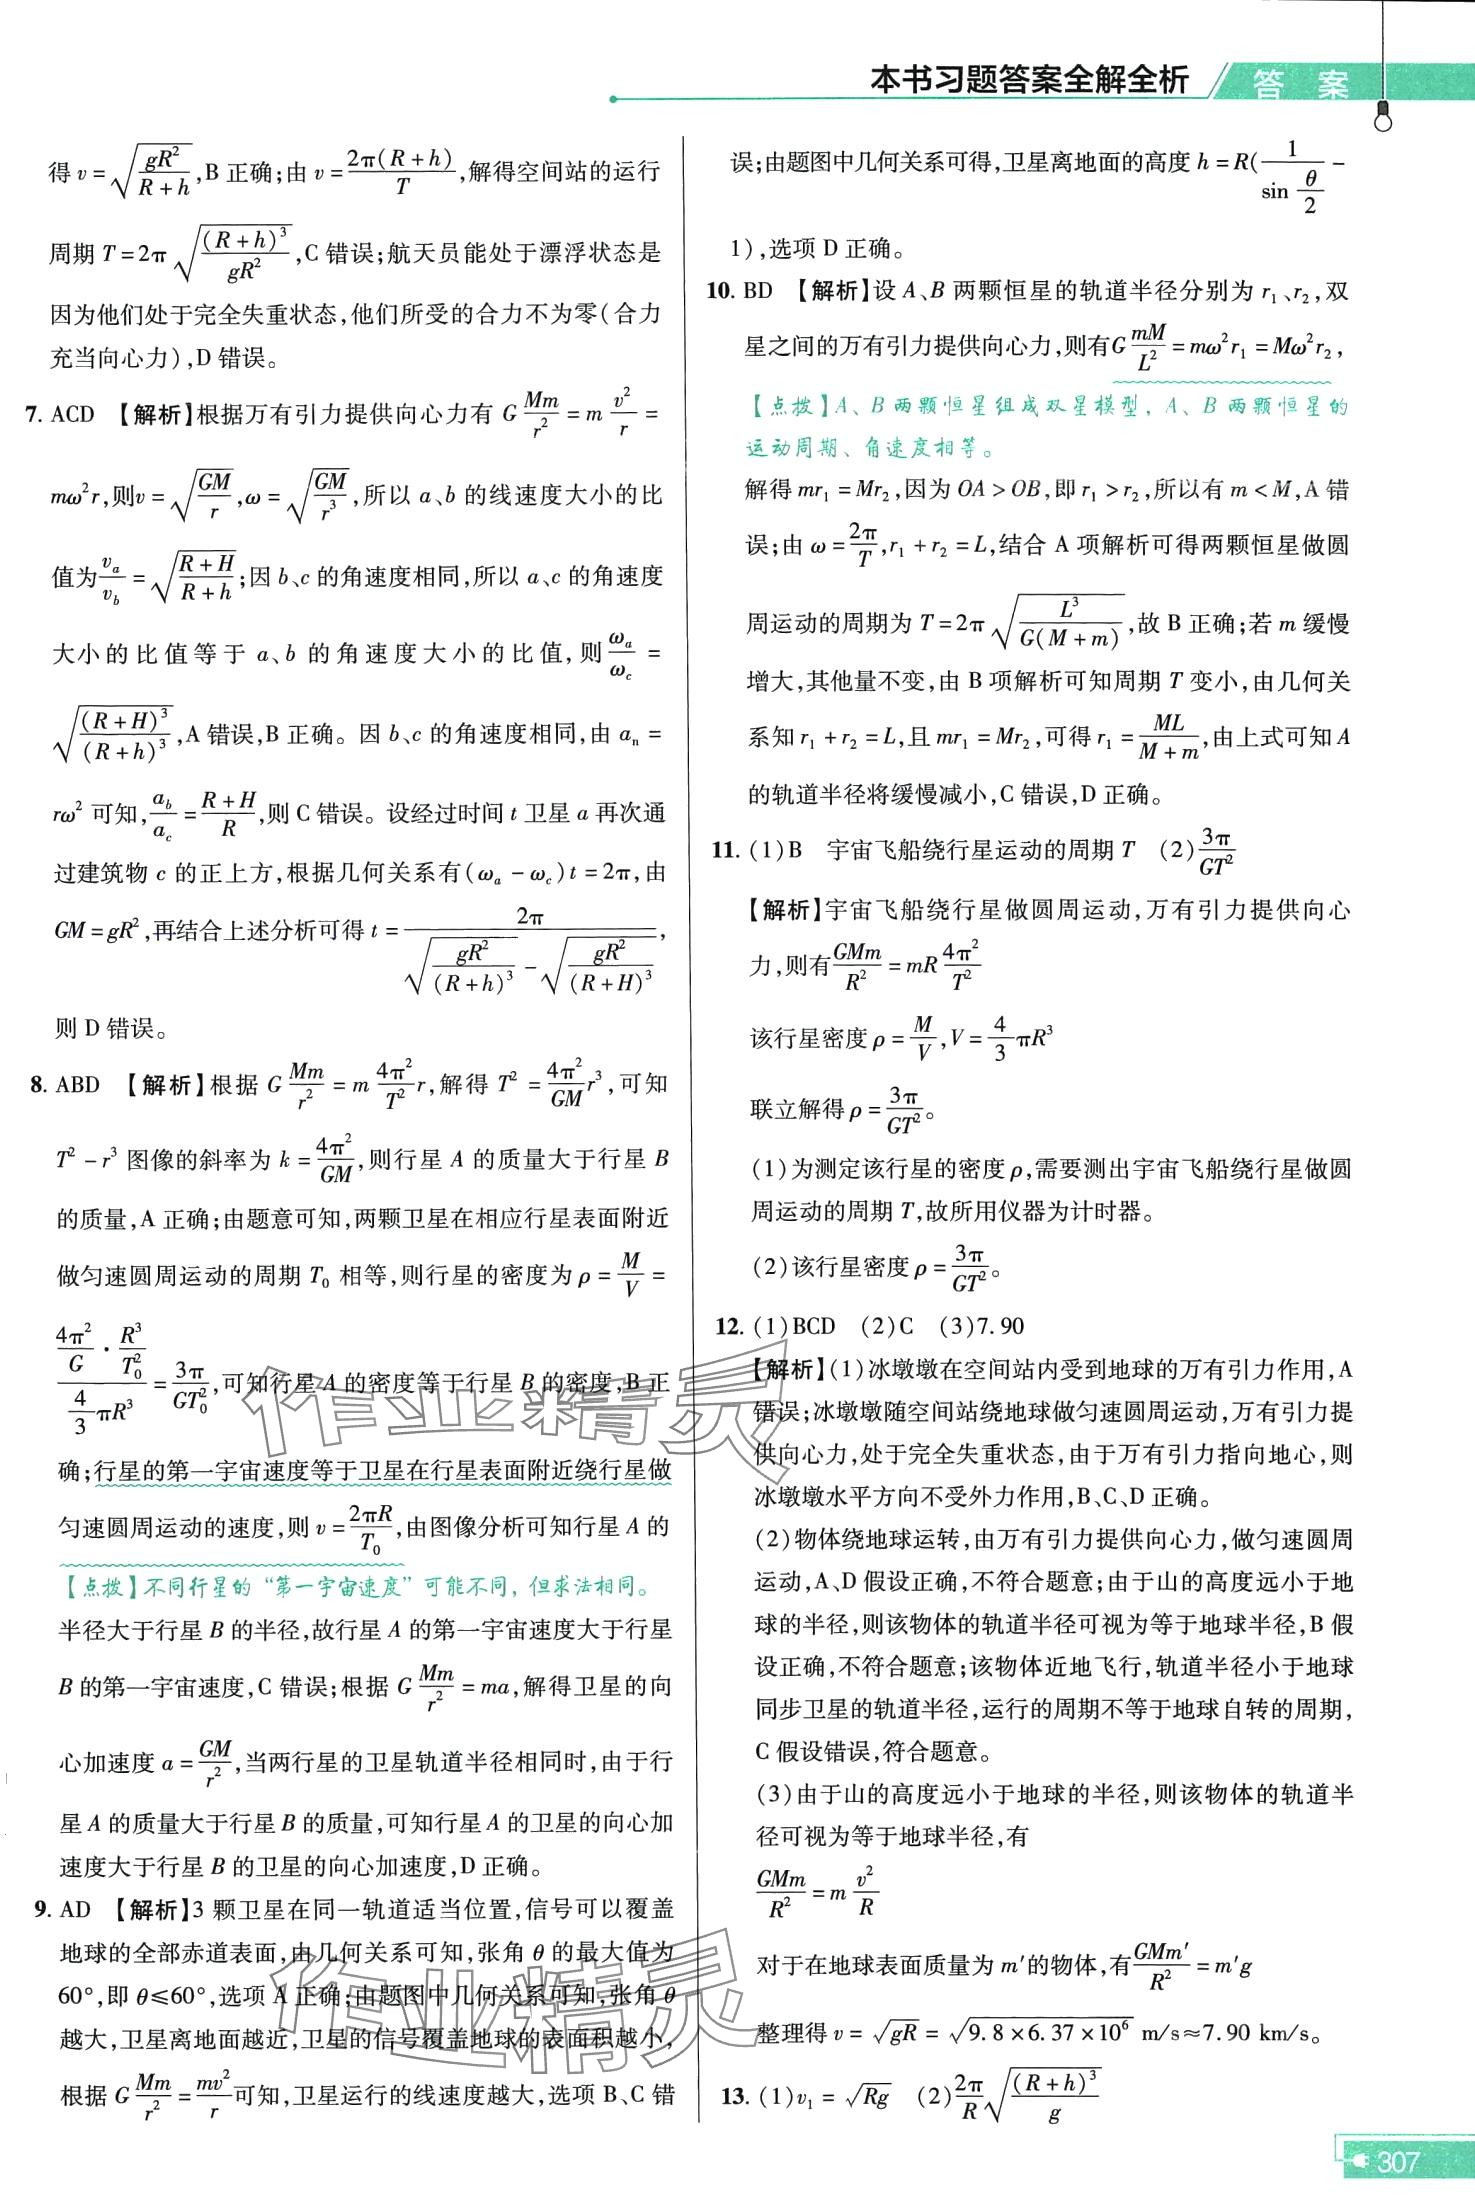 本书习题答案全解全析 答案
得 v = √(gR²/(R+h)),B 正确;由 v = 2π(R+h)/T,解得空间站的运行
周期 T = 2π√((R+h)³/gR²),C 错误;航天员能处于漂浮状态是
因为他们处于完全失重状态,他们所受的合力不为零(合力
充当向心力),D 错误。
7. ACD 【解析】根据万有引力提供向心力有 G Mm/r² = m v²/r =
mω²r,则v = √(GM/r),ω = √(GM/r³),所以 a、b 的线速度大小的比
值为 v_a/v_b = √((R+H)/(R+h));因 b、c 的角速度相同,所以 a、c 的角速度
大小的比值等于 a、b 的角速度大小的比值,则 ω_a/ω_c =
√((R+H)³/(R+h)³),A 错误,B 正确。因 b、c 的角速度相同,由 a_n =
rω² 可知,a_b/a_c = (R+H)/R,则 C 错误。设经过时间 t 卫星 a 再次通
过建筑物 c 的正上方,根据几何关系有(ω_a − ω_c)t = 2π,由
GM = gR²,再结合上述分析可得 t = 2π/(√(gR²/(R+h)³) − √(gR²/(R+H)³)),
则 D 错误。
8. ABD 【解析】根据 G Mm/r² = m 4π²/T² r,解得 T² = 4π²/GM r³,可知
T² − r³ 图像的斜率为 k = 4π²/GM,则行星 A 的质量大于行星 B
的质量,A 正确;由题意可知,两颗卫星在相应行星表面附近
做匀速圆周运动的周期 T₀ 相等,则行星的密度为 ρ = M/V =
(4π²/G · R³/T₀²)/(4/3 πR³) = 3π/GT₀²,可知行星 A 的密度等于行星 B 的密度,B 正
确;行星的第一宇宙速度等于卫星在行星表面附近绕行星做
匀速圆周运动的速度,则 v = 2πR/T₀,由图像分析可知行星 A 的
【点拨】不同行星的“第一宇宙速度”可能不同,但求法相同。
半径大于行星 B 的半径,故行星 A 的第一宇宙速度大于行星
B 的第一宇宙速度,C 错误;根据 G Mm/r² = ma,解得卫星的向
心加速度 a = GM/r²,当两行星的卫星轨道半径相同时,由于行
星 A 的质量大于行星 B 的质量,可知行星 A 的卫星的向心加
速度大于行星 B 的卫星的向心加速度,D 正确。
9. AD 【解析】3 颗卫星在同一轨道适当位置,信号可以覆盖
地球的全部赤道表面,由几何关系可知,张角 θ 的最大值为
60°,即 θ≤60°,选项 A 正确;由题图中几何关系可知,张角 θ
越大,卫星离地面越近,卫星的信号覆盖地球的表面积越小,
根据 G Mm/r² = mv²/r 可知,卫星运行的线速度越大,选项 B、C 错
误;由题图中几何关系可得,卫星离地面的高度 h = R(1/sin(θ/2) −
1),选项 D 正确。
10. BD 【解析】设 A、B 两颗恒星的轨道半径分别为 r₁、r₂,双
星之间的万有引力提供向心力,则有G mM/L² = mω²r₁ = Mω²r₂,
【点拨】A、B 两颗恒星组成双星模型,A、B 两颗恒星的
运动周期、角速度相等。
解得 mr₁ = Mr₂,因为 OA > OB,即 r₁ > r₂,所以有 m < M,A 错
误;由 ω = 2π/T,r₁ + r₂ = L,结合 A 项解析可得两颗恒星做圆
周运动的周期为 T = 2π√(L³/G(M+m)),故 B 正确;若 m 缓慢
增大,其他量不变,由 B 项解析可知周期 T 变小,由几何关
系知 r₁ + r₂ = L,且 mr₁ = Mr₂,可得 r₁ = ML/(M+m),由上式可知 A
的轨道半径将缓慢减小,C 错误,D 正确。
11. (1)B 宇宙飞船绕行星运动的周期 T (2)3π/GT²
【解析】宇宙飞船绕行星做圆周运动,万有引力提供向心
力,则有 GMm/R² = mR 4π²/T²
该行星密度 ρ = M/V,V = 4/3 πR³
联立解得 ρ = 3π/GT²。
(1)为测定该行星的密度 ρ,需要测出宇宙飞船绕行星做圆
周运动的周期 T,故所用仪器为计时器。
(2)该行星密度 ρ = 3π/GT²。
12. (1)BCD (2)C (3)7.90
【解析】(1)冰墩墩在空间站内受到地球的万有引力作用,A
错误;冰墩墩随空间站绕地球做匀速圆周运动,万有引力提
供向心力,处于完全失重状态,由于万有引力指向地心,则
冰墩墩水平方向不受外力作用,B、C、D 正确。
(2)物体绕地球运转,由万有引力提供向心力,做匀速圆周
运动,A、D 假设正确,不符合题意;由于山的高度远小于地
球的半径,则该物体的轨道半径可视为等于地球半径,B 假
设正确,不符合题意;该物体近地飞行,轨道半径小于地球
同步卫星的轨道半径,运行的周期不等于地球自转的周期,
C 假设错误,符合题意。
(3)由于山的高度远小于地球的半径,则该物体的轨道半
径可视为等于地球半径,有
GMm/R² = m v²/R
对于在地球表面质量为 m′的物体,有 GMm′/R² = m′g
整理得 v = √(gR) = √(9.8×6.37×10⁶) m/s≈7.90 km/s。
13. (1)v₁ = √(Rg) (2)2π/R √((R+h)³/g)
307
作业精灵
作业精灵